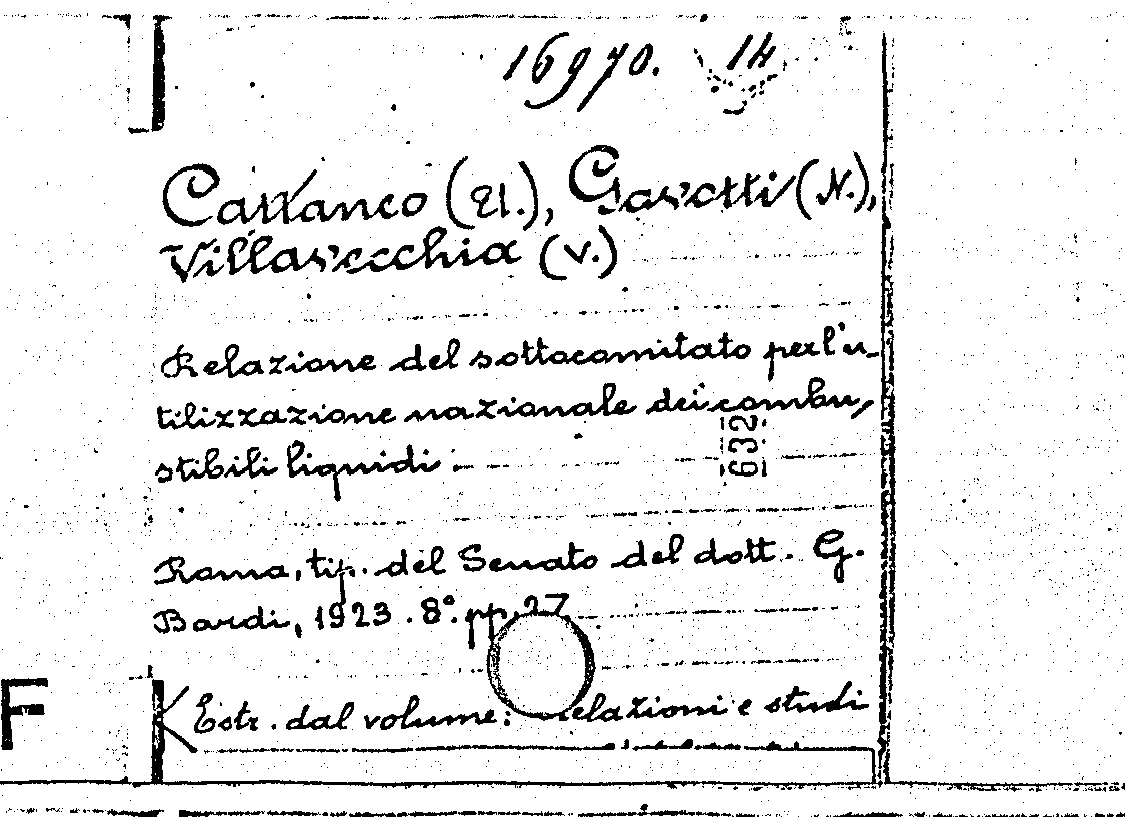 16970. 14
Cattaneo (U.), Gavotti (N.),
Villavecchia (V.)
Relazione del sottocomitato per l'u-
tilizzazione nazionale dei combu,
stibili liquidi.
632
Roma, tip. del Senato del dott. G.
Bardi, 1923. 8° pp. 27
F
Estr. dal volume: elazioni e studi